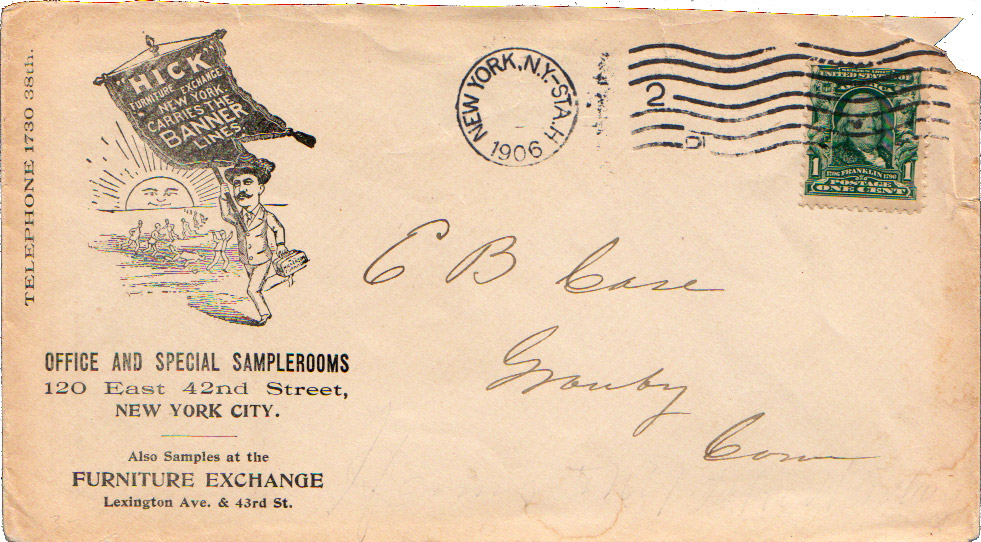 TELEPHONE 1730 38th.
"HICK"
FURNITURE EXCHANGE
NEW YORK
CARRIES THE
BANNER
LINES
OFFICE AND SPECIAL SAMPLEROOMS
120 East 42nd Street,
NEW YORK CITY.
Also Samples at the
FURNITURE EXCHANGE
Lexington Ave. & 43rd St.
NEW YORK, N.Y.-STA.H
1906
2
D
SERIES 1902
UNITED STATES OF
AMERICA
1706 FRANKLIN 1790
1 POSTAGE 1
ONE CENT
E B Case
Granby
Conn